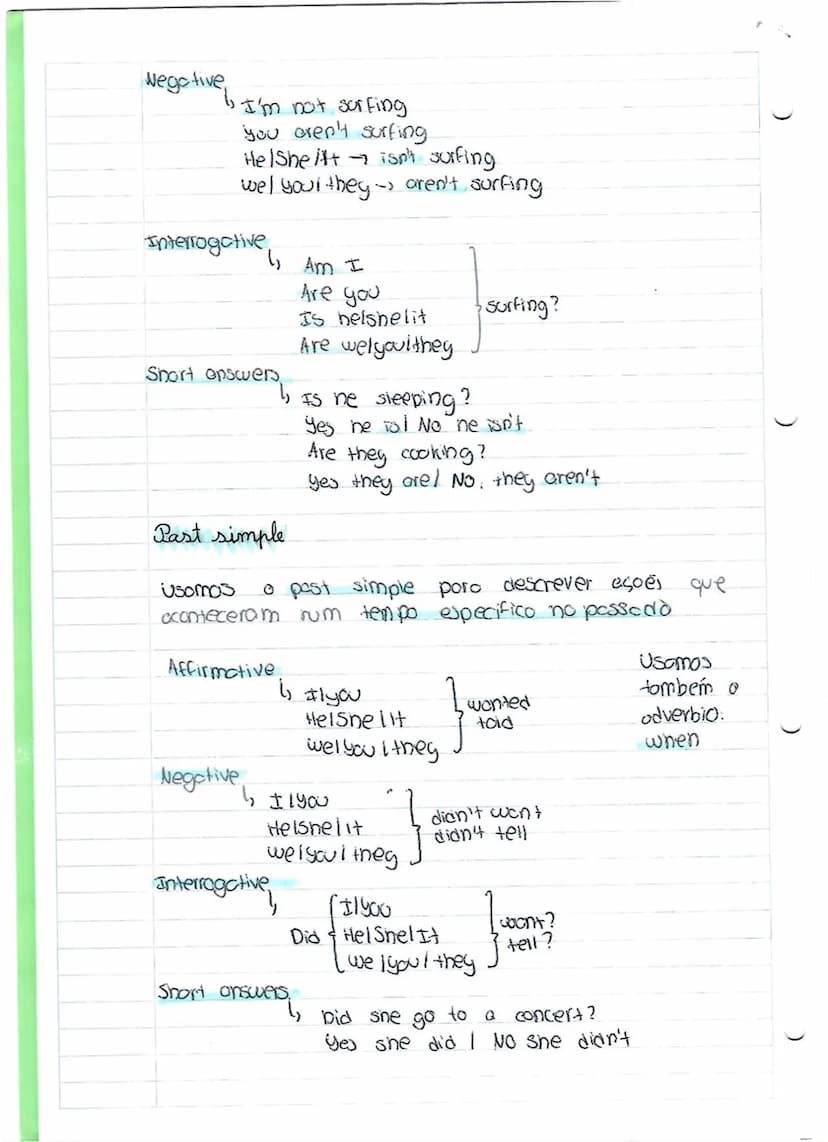 Negative
↳ I'm not surfing
you aren't surfing
He/She/It → isn't surfing
we/you/they → aren't surfing
Interrogative
↳ Am I
Are you
Is he/she/it
Are we/you/they
surfing?
Short answers
↳ Is he sleeping?
Yes he is/ No he isn't
Are they cooking?
Yes they are/ No, they aren't
Past simple
Usamos o past simple para descrever açoẽs que
aconteceram num tempo especifico no passado
Affirmative
↳ I/you
He/She/It
we/you/they
wanted
told
Usamos
também o
adverbio:
when
Negative
↳ I/you
He/she/it
we/you/they
didn't want
didn't tell
Interrogative
↳
Did
I/you
He/She/It
we/you/they
want?
tell?
Short answers
↳ Did she go to a concert?
Yes she did / No she didn't